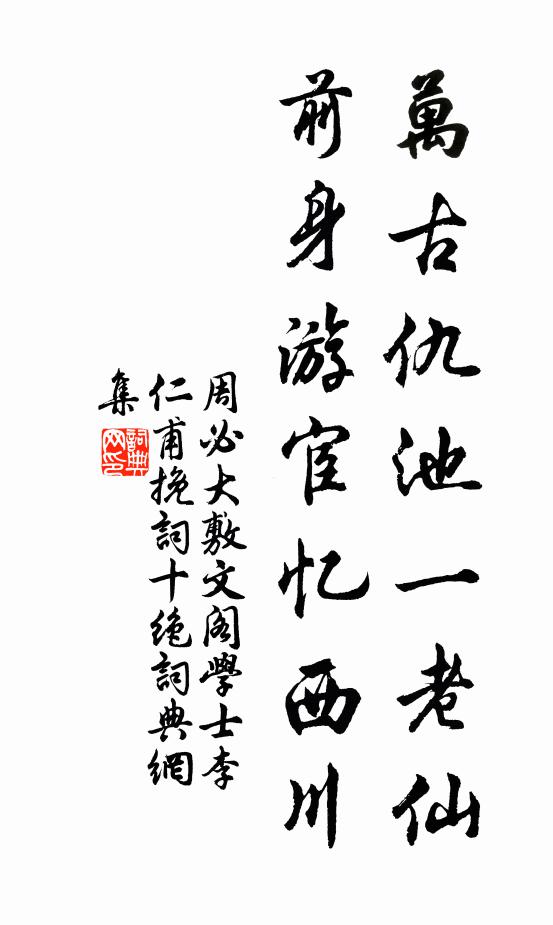 萬古仇池一老仙
前身游宦忆西川
周必大敷文阁學士李
仁甫挽詞十绝詞典網
集
詞典
网印